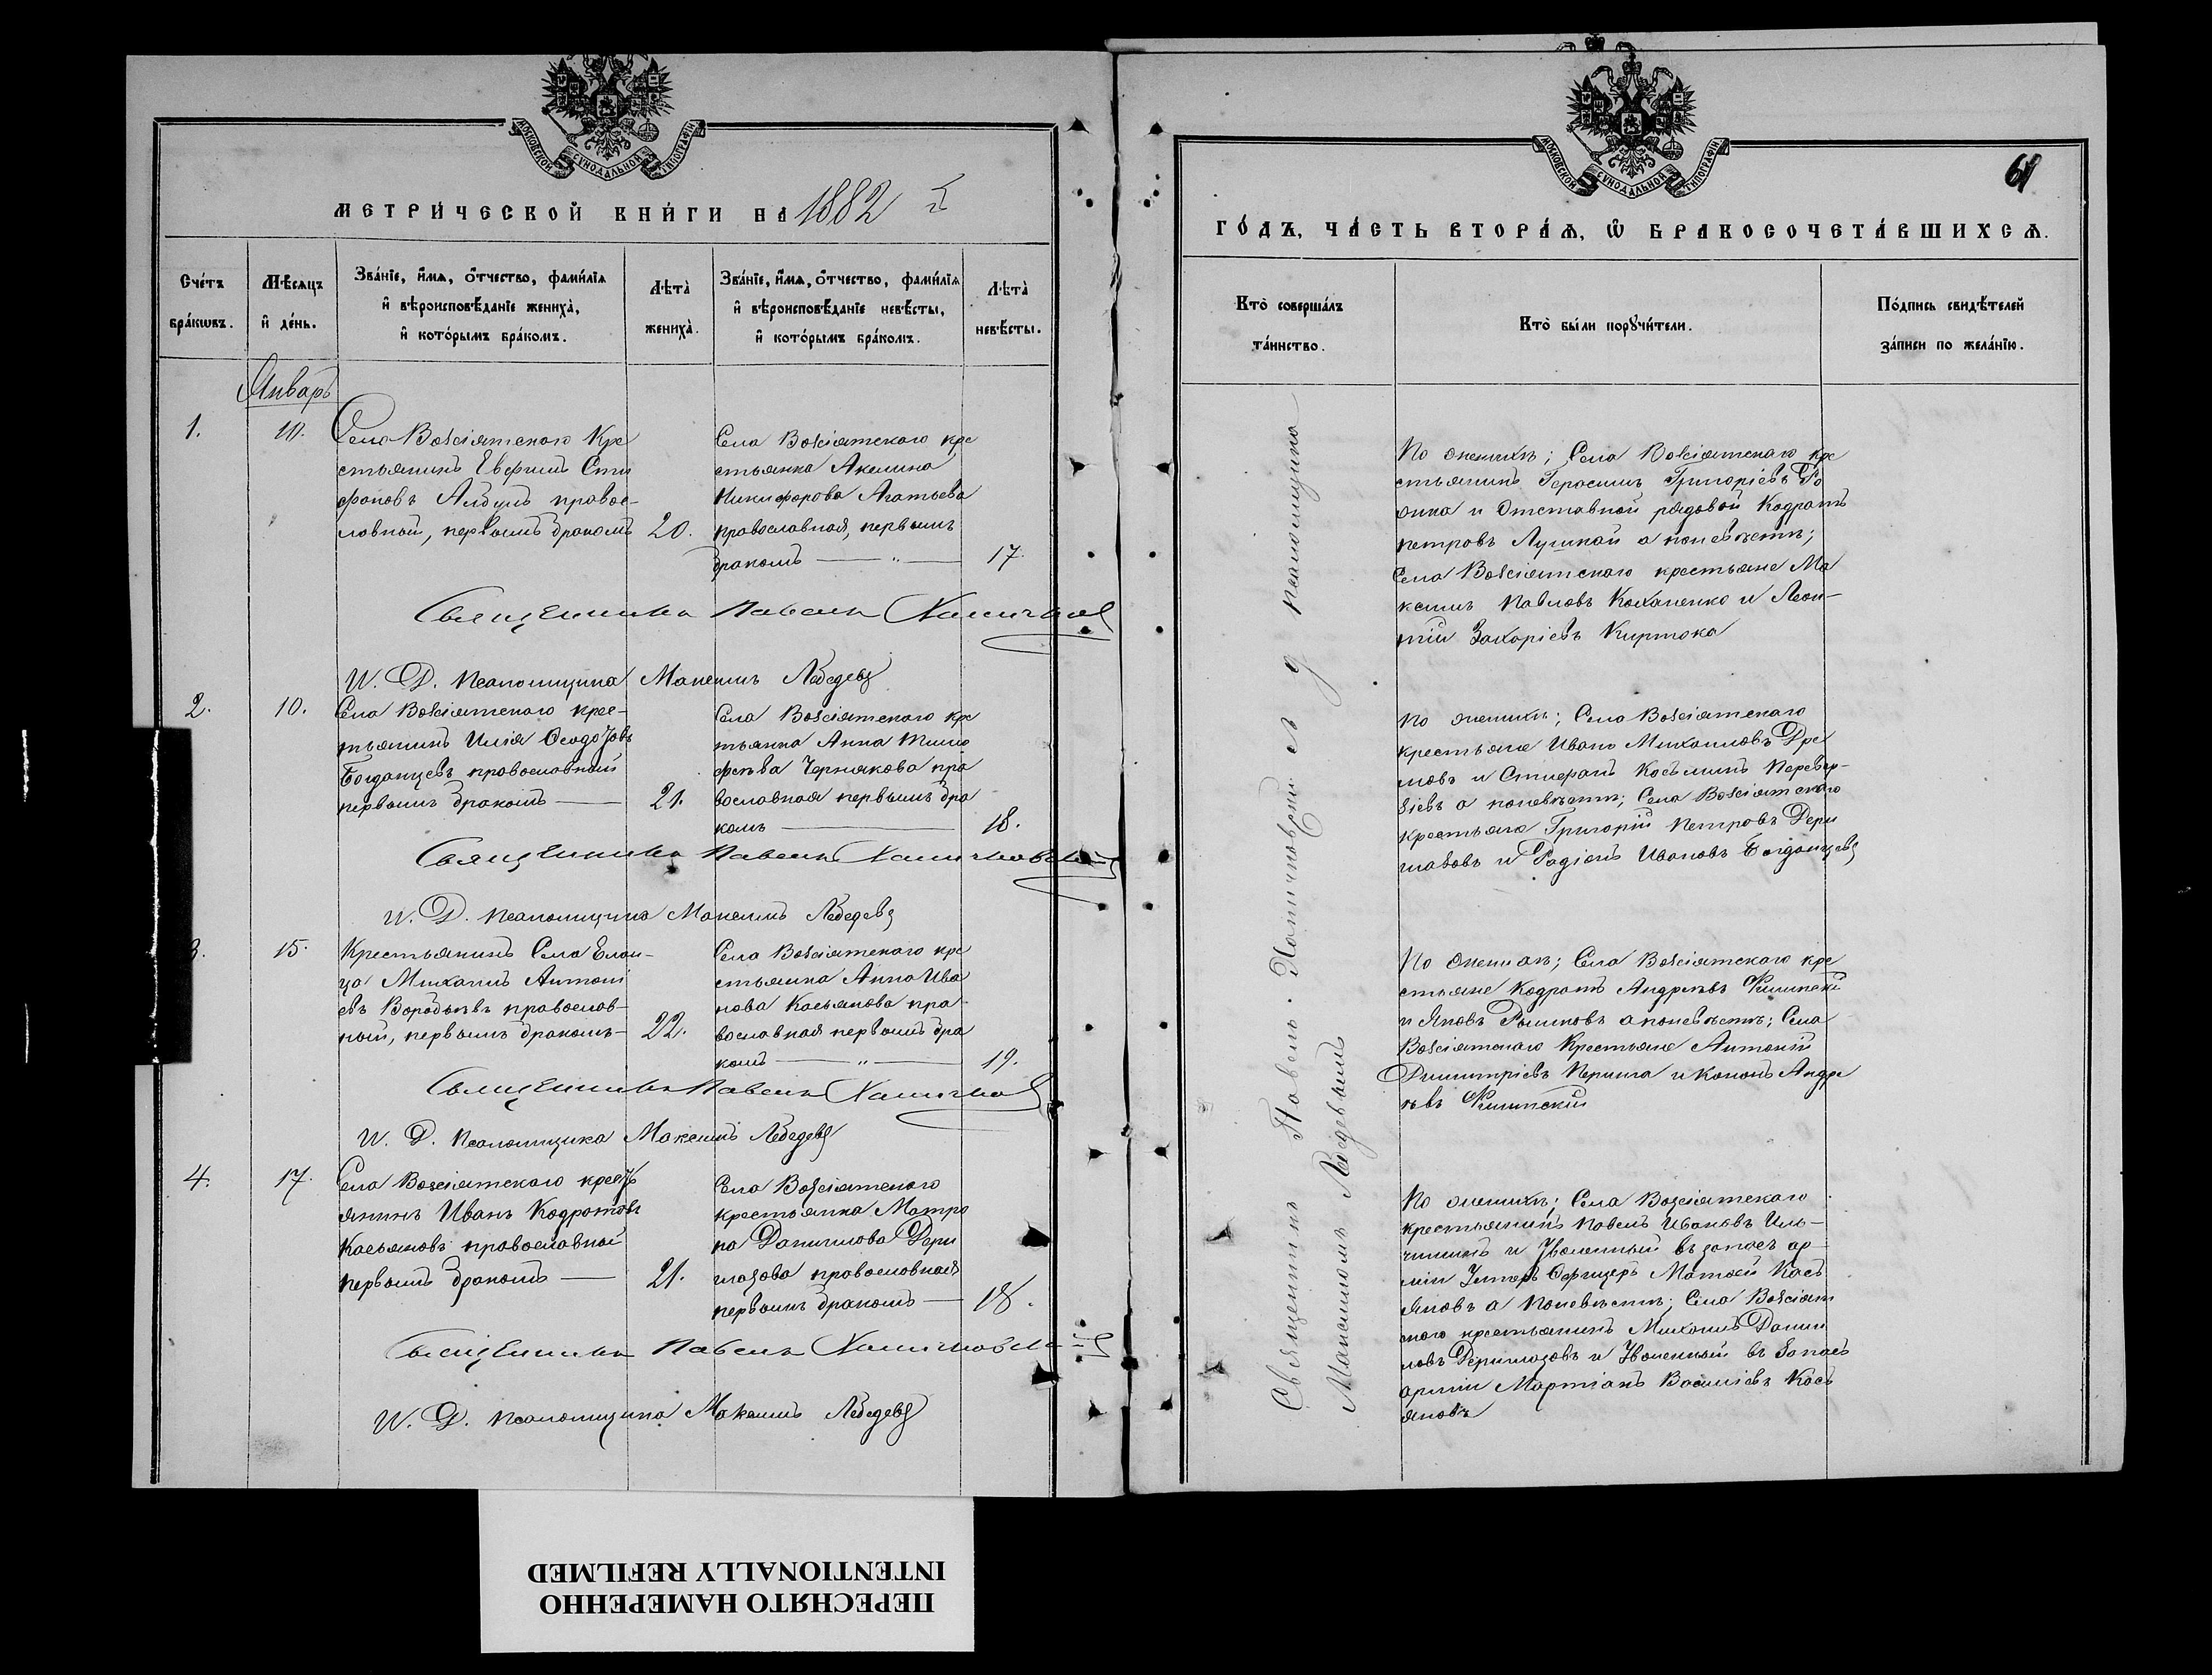 МОСКОВСКОЙ СѴНОДАЛЬНОЙ ТИПОГРАФІИ
МЕТРИ́ЧЕСКОЙ КНИ́ГИ НА 1882
Сче́тъ бра́кѡвъ.
Мѣ́сяцъ и҆ де́нь.
Зва́нїе, и҆́мѧ, ѻ҆́тчество, фами́лїѧ
и҆ вѣроисповѣ́данїе жениха̀,
и҆ кото́рымъ бра́комъ.
Лѣта̀ жениха̀.
Зва́нїе, и҆́мѧ, ѻ҆́тчество, фами́лїѧ
и҆ вѣроисповѣ́данїе невѣ́сты,
и҆ кото́рымъ бра́комъ.
Лѣта̀ невѣ́сты.
Январь
1.
10.
Села Возсіятскаго Кре
стьянинъ Евфимъ Сти
фановъ Албулъ правос-
лавный, первымъ бракомъ
20.
Села Возсіятскаго кре
стьянка Акелина
Никифорова Агатьева
православная, первымъ
бракомъ — „ —
17.
Священникъ Павелъ
И. Д. Псаломщика Максимъ Лебедевъ
2.
10.
Села Возсіятскаго крес-
тьянинъ Илія Ѳеодоровъ
Богданцевъ православный
первымъ бракомъ —
21.
Села Возсіятскаго кре
тьянка Анна Тимо
фѣева Чернякова пра
вославная первымъ бра
комъ —
18.
Священникъ Павелъ Хотичковскій
И. Д. Псаломщика Максимъ Лебедевъ
3.
15.
Крестьянинъ Села Елан-
ца Михаилъ Антоні
евъ Воробьевъ православ-
ный, первымъ бракомъ-
22.
Села Возсіятскаго кре
стьянка Анна Ива
нова Касьянова пра-
вославная первымъ бра
комъ — „ —
19.
Священникъ Павелъ
И. Д. Псаломщика Максимъ Лебедевъ
4.
17.
Села Возсіятскаго кресть
янинъ Иванъ Кодратовъ
Касьяновъ православный
первымъ бракомъ —
21.
Села Возсіятскаго
крестьянка Матро
на Данилова Дери
глазова православная
первымъ бракомъ —
18.
Священникъ Павелъ Хотичковскій
И. Д. Псаломщика Максимъ Лебедевъ
МОСКОВСКОЙ СѴНОДАЛЬНОЙ ТИПОГРАФІИ
61
ГО́ДЪ, ЧА́СТЬ ВТОРА́Ѧ, Ѽ БРАКОСОЧЕТА́ВШИХСѦ.
Кто̀ соверша́лъ та́инство.
Кто̀ бы́ли порꙋчи́тели.
По́дпись свидѣ́телей
за́писи по жела́нїю.
Священникъ Павелъ Хотичковскій съ и д псаломщика
Максимомъ Лебедевымъ
По женихѣ; Села Возсіятскаго кре
стьянинъ Герасимъ Григоріевъ
и Отставной рядовой Кодратъ
Петровъ а по невѣстѣ;
Села Возсіятскаго крестьяне Ма
ксимъ Павловъ Коханенко и Леон-
тій Захаріевъ Киртока
По женихѣ; Села Возсіятскаго
крестьяне Иванъ Михаиловъ
и Стиефанъ Косьминъ Перевер-
зіевъ а по невѣстѣ; Села Возсіятскаго
крестьяне Григорій Петровъ Дери
глазовъ и Радіонъ Ивановъ Богданцевъ
По женихѣ; Села Возсіятскаго кре
стьяне Кодратъ Андреевъ
и Яковъ а по невѣстѣ; Села
Возсіятскаго Крестьяне Антоній
Димитріевъ и Кононъ Андре
евъ
По женихѣ; Села Возсіятскаго
крестьянинъ Павелъ Ивановъ Иль-
и Уволенный въ запасъ ар-
міи Унтеръ Офицеръ Матѳей Кась
яновъ а по невѣстѣ; Села Возсіят
скаго крестьянинъ Михаилъ Дани
ловъ Дериглазовъ и Уволенный въ Запасъ
арміи Мартіанъ Василіевъ Кась
яновъ
ПЕРЕСНЯТО НАМЕРЕННО
INTENTIONALLY REFILMED